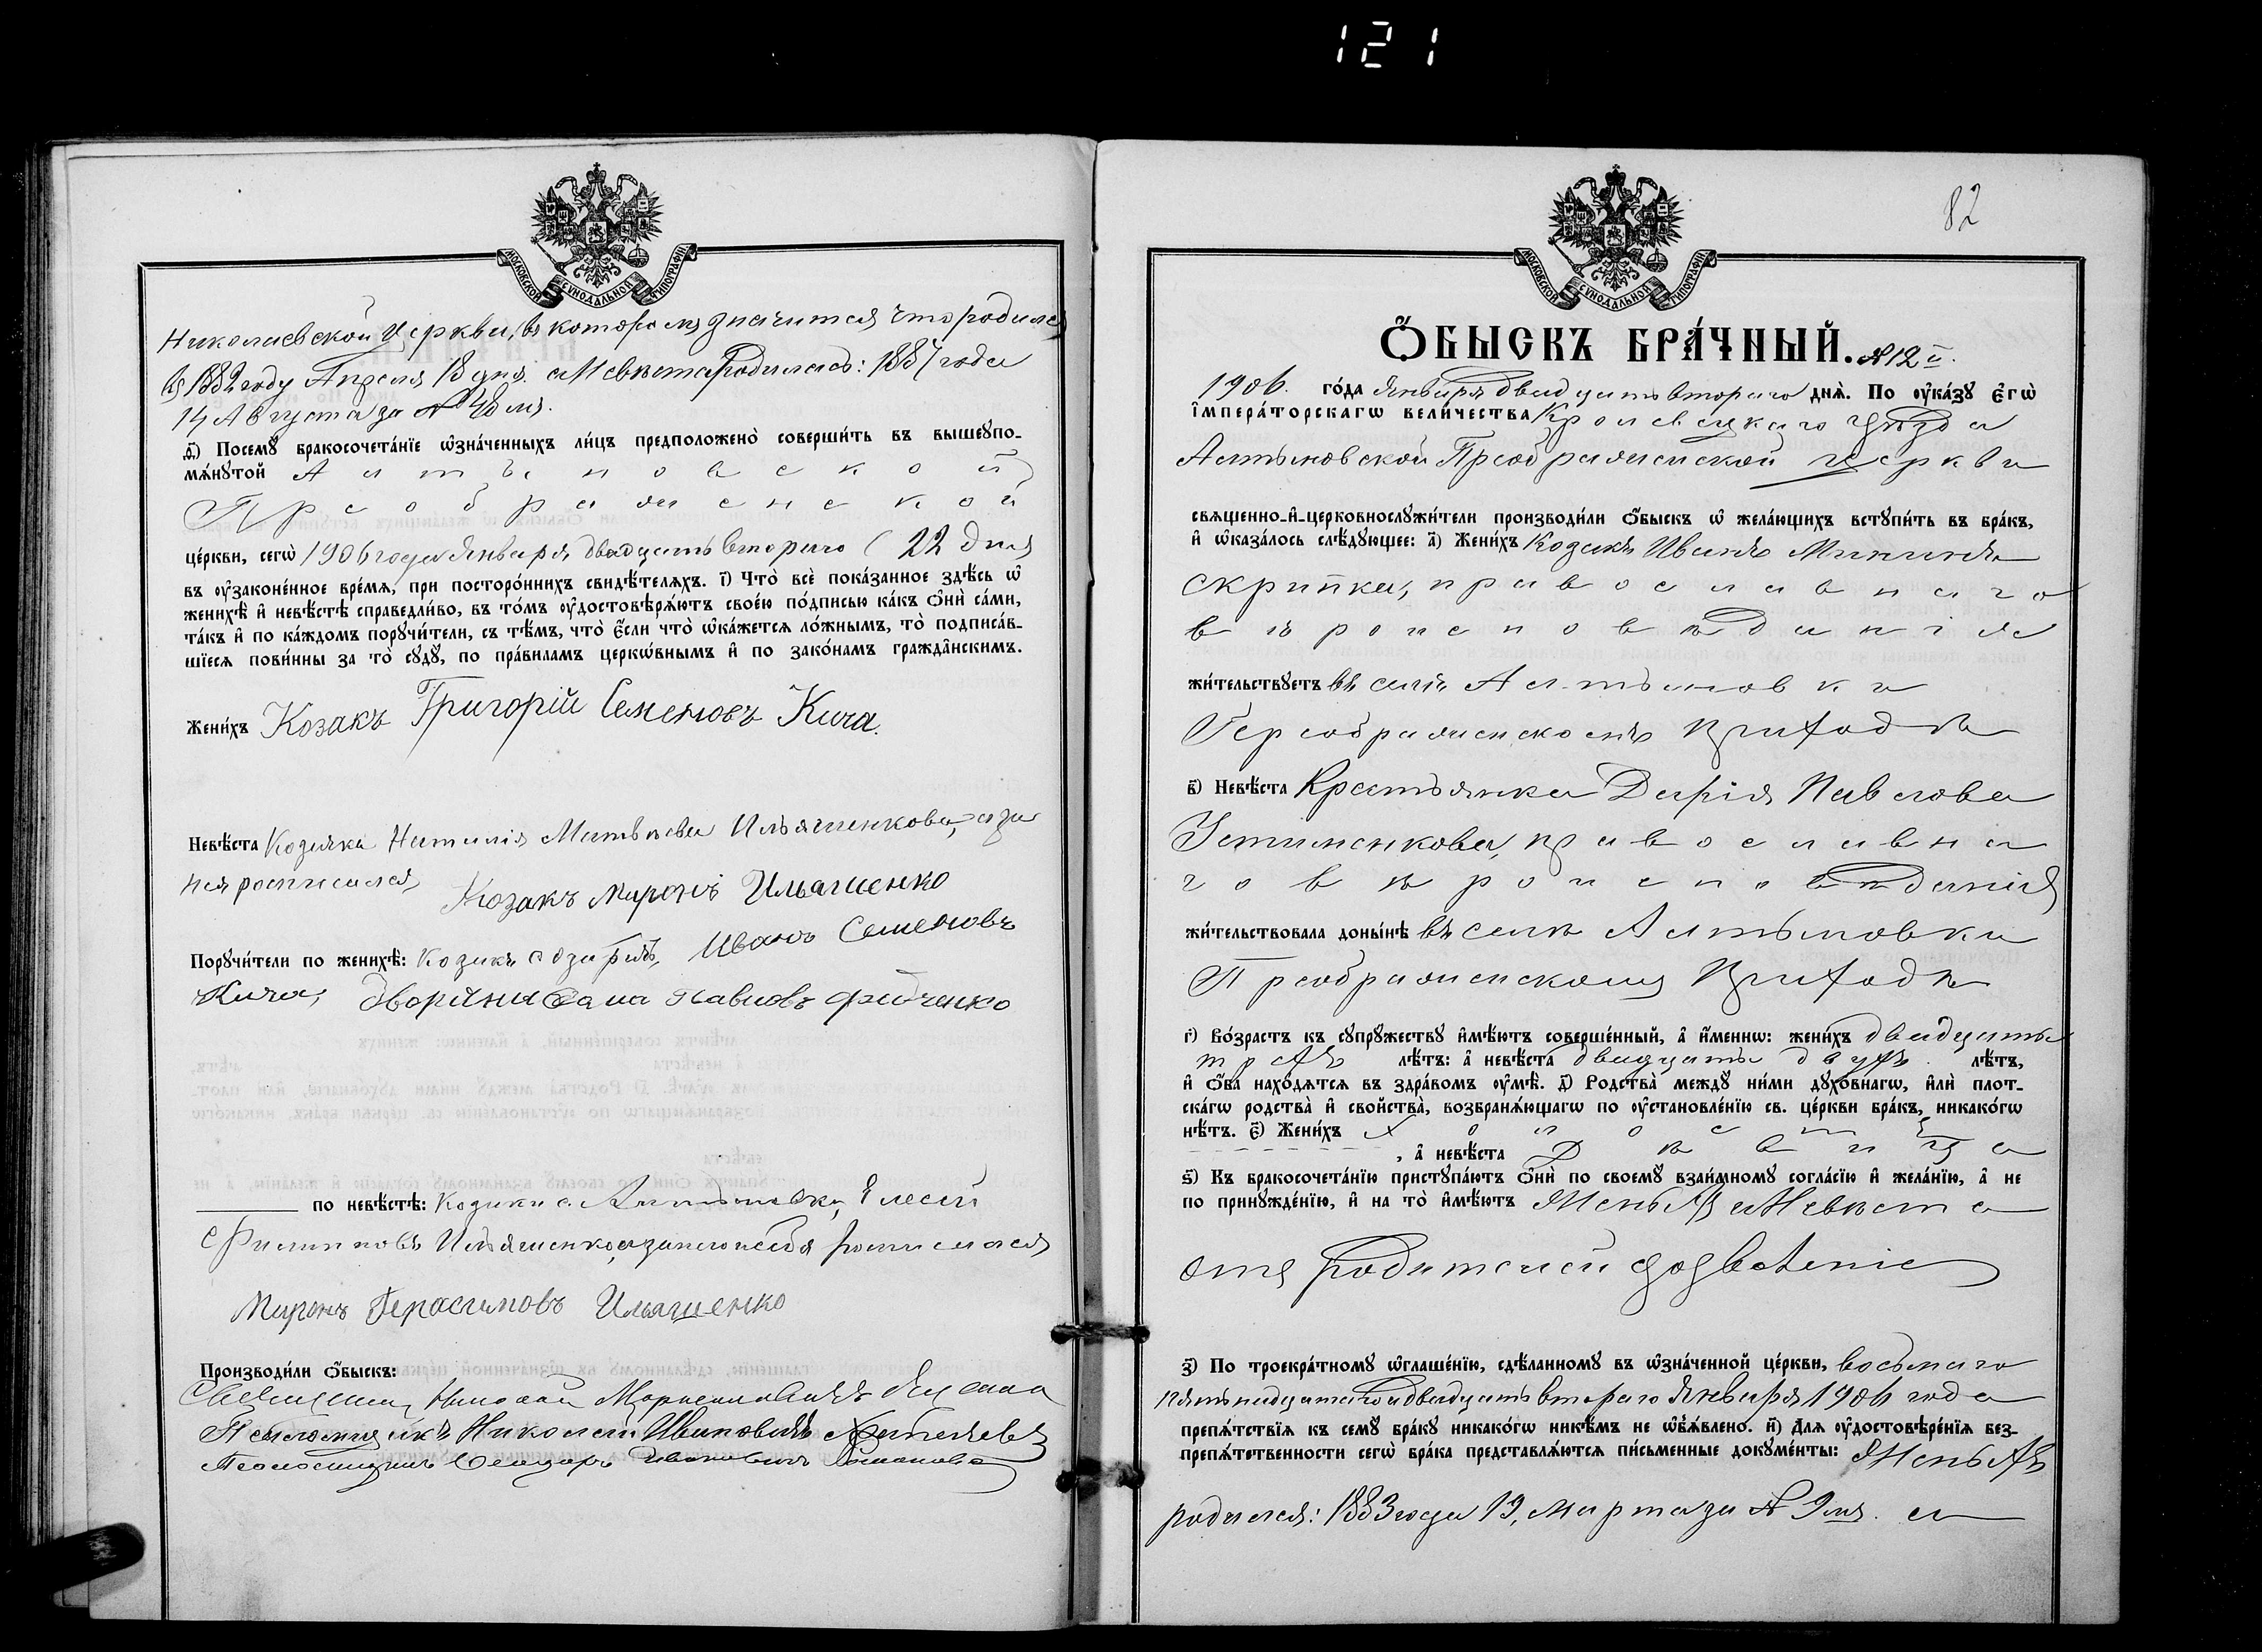 121
МОСКОВСКОЙ СѴНОДАЛЬНОЙ ТИПОГРАФІИ
Николаевской Церкви, въ которомъ значится что родился
въ 1882 году Апреля 18 дня. а Невѣста родилась: 1887 года
14 Августа за № 48 мъ.
д҃) Посемꙋ̀ бракосочета́нїе ѡ҆зна́ченныхъ ли́цъ предположено̀ соверши́ть въ вышеꙋпо-
мѧ́нꙋтой Алтыновской
Преображенской
це́ркви, сегѡ̀ 1906 года Января двадцать второго (22 дня)
въ ᲂу҆законе́нное вре́мѧ, при посторо́ннихъ свидѣ́телѧхъ. і҃) Что̀ всѐ пока́занное здѣ́сь ѡ҆
женихѣ̀ и҆ невѣ́стѣ справедли́во, въ то́мъ ᲂу҆достовѣрѧ́ютъ свое́ю по́дписью ка́къ ѻ҆нѝ са́ми,
та́къ и҆ по ка́ждомъ порꙋчи́тели, съ тѣ́мъ, что̀ є҆́сли что̀ ѡ҆ка́жетсѧ ло́жнымъ, то̀ подписа́в-
шїесѧ пови́нны за то̀ сꙋдꙋ̀, по пра́виламъ церкѡ́внымъ и҆ по зако́намъ гражда̑нскимъ.
Жени́хъ Козакъ Григорій Семеновъ Кича.
Невѣ́ста Козачка Наталія Матвѣева Ильяшенкова, а за
нея росписался, Козакъ Миронъ Ильяшенко
Порꙋчи́тели по женихѣ̀: Козакъ Иванъ Семеновъ
Кича, Павловъ
по невѣ́стѣ: Козаки с. Алтыновки, Елесей
Филиповъ Ильяшенко, а за него росписался
Миронъ Герасимовъ Ильяшенко
Производи́ли ѻ҆́быскъ:
Священникъ Николай
Псаломщикъ Николай Ивановичъ
Псаломщикъ Ивановичъ
82
МОСКОВСКОЙ СѴНОДАЛЬНОЙ ТИПОГРАФІИ
Ѻ҆́БЫСКЪ БРА́ЧНЫЙ. № 12 й.
1906. го́да Января двадцать второго днѧ̀. По ᲂу҆ка́зꙋ Є҆гѡ̀
І҆мпера́торскагѡ вели́чества Кролевецкаго Уѣзда
Алтыновской Преображенской Церкви
свѧщенно-и҆-церковнослꙋжи́тели производи́ли ѻ҆́быскъ ѡ҆ жела́ющихъ встꙋпи́ть въ бра́къ,
и҆ ѡ҆каза́лось слѣ́дꙋющее: а҃) Жени́хъ Козакъ Иванъ Мининъ
Скрипка, православнаго
вѣроисповѣданія
жи́тельствꙋетъ въ селѣ Алтыновки
Преображенскомъ Приходѣ
в҃) Невѣ́ста Крестьянка Дарія Павлова
Устименкова, православна
го вѣроисповѣданія
жи́тельствовала доны́нѣ въ селѣ Алтыновки
Преображенскомъ Приходѣ
г҃) Во́зрастъ къ сꙋпрꙋ́жествꙋ и҆мѣ́ютъ соверше́нный, а҆ и҆́меннѡ: жени́хъ двадцать
трехъ лѣ́тъ: а҆ невѣ́ста двадцать двухъ лѣ́тъ,
и҆ ѻ҆́ба нахо́дѧтсѧ въ здра́вомъ ᲂу҆мѣ̀. д҃) Родства̀ междꙋ̀ ни́ми дꙋхо́внагѡ, и҆лѝ плот-
ска́гѡ родства̀ и҆ сво́йства̀, возбранѧ́ющагѡ по ᲂу҆становле́нїю св. це́ркви бра́къ, никако́гѡ
нѣ́тъ. є҃) Жени́хъ Холостъ
, а҆ невѣ́ста Дѣвица
ѕ҃) Къ бракосочета́нїю пристꙋпа́ютъ ѻ҆нѝ по своемꙋ̀ взаи́мномꙋ согла́сїю и҆ жела́нїю, а҆ не
по принꙋжде́нїю, и҆ на то̀ и҆мѣ́ютъ Женихъ и Невѣста
отъ родителей дозволеніе
з҃) По троекра́тномꙋ ѡ҆глаше́нїю, сдѣ́ланномꙋ въ ѡ҆зна́ченной це́ркви, восьмого
пятьнадцатого и двадцать второго Января 1906 года
препѧ́тствїѧ къ семꙋ̀ бра́кꙋ никако́гѡ никѣ́мъ не ѡ҆б̾ѧ́влено. и҃) Длѧ ᲂу҆достовѣре́нїѧ без-
препѧ́тственности сегѡ̀ бра́ка представлѧ́ютсѧ пи́сьменные докꙋме́нты: Женихъ
родился: 1883 года 19, марта за № 9 мъ. а